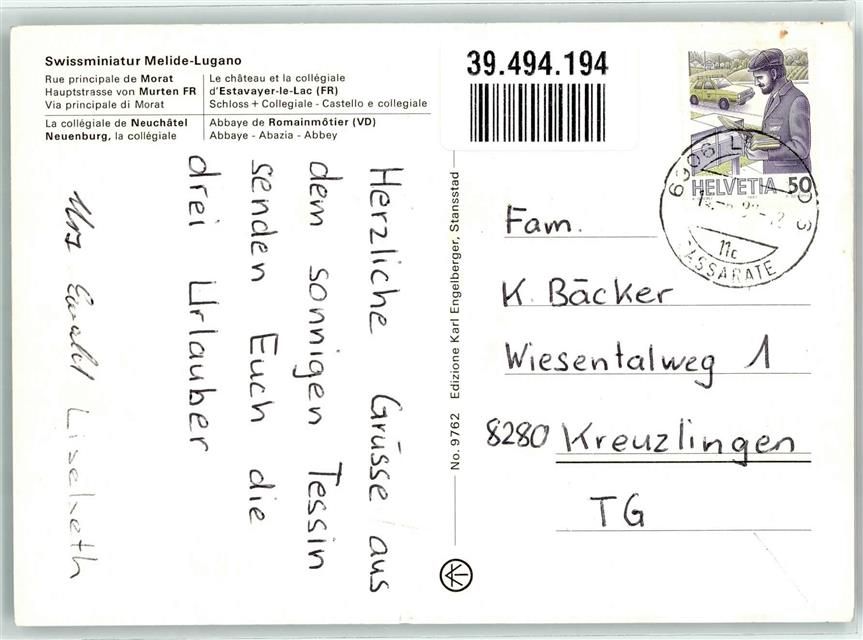 Swissminiatur Melide-Lugano
Rue principale de Morat
Hauptstrasse von Murten FR
Via principale di Morat
Le château et la collégiale
d'Estavayer-le-Lac (FR)
Schloss + Collegiale - Castello e collegiale
La collégiale de Neuchâtel
Neuenburg, la collégiale
Abbaye de Romainmôtier (VD)
Abbaye - Abazia - Abbey
39.494.194
HELVETIA 50
6906 L
11c
CASSARATE
Herzliche Grüsse aus
dem sonnigen Tessin
senden Euch die
drei Urlauber
Urs Ewald Liselieth
No. 9762 Edizione Karl Engelberger, Stansstad
Fam.
K. Bäcker
Wiesentalweg 1
8280 Kreuzlingen
TG